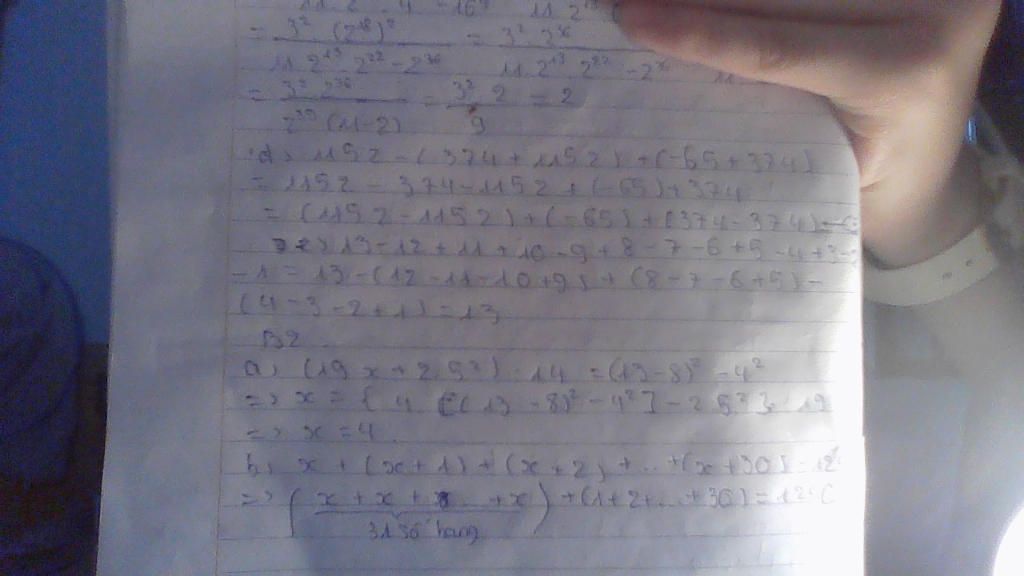 11.2 . 4 - 16⁹ 11.2¹³
= 3² . (2¹⁸)² / 11.2¹³.2²² - 2³⁶ = 3² . 2³⁶ / 11.2¹³.2²² - 2³⁶
= 3².2³⁶ / 2³⁵(11-2) = 3².2 / 9 = 2
d, 1152 - (374 + 1152) + (-65 + 374)
= 1152 - 374 - 1152 + (-65) + 374
= (1152 - 1152) + (-65) + (374 - 374) =
e, 13 - 12 + 11 + 10 - 9 + 8 - 7 - 6 + 5 - 4 + 3
- 1 = 13 - (12 - 11 - 10 + 9) + (8 - 7 - 6 + 5) -
(4 - 3 - 2 + 1) = 13
B2
a, (19x + 2.5²) : 14 = (13 - 8)² - 4²
=> x = { 14 [(13 - 8)² - 4²] - 2.5² } : 19
=> x = 4
b, x + (x + 1) + (x + 2) + ... + (x + 30) = 12
=> (x + x + ... + x) + (1 + 2 + ... + 30) = 12
31 số hạng